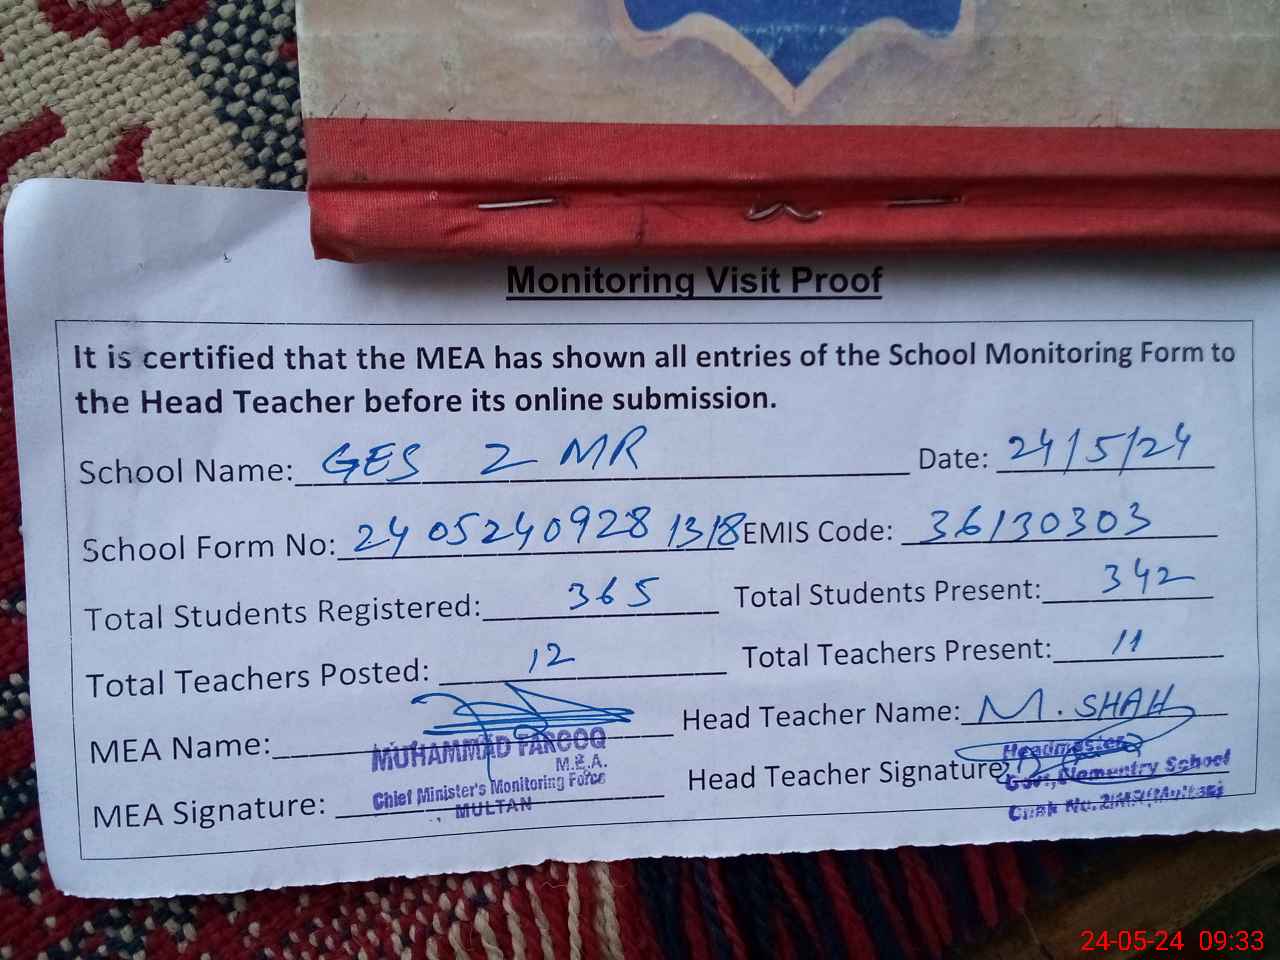 Monitoring Visit Proof
It is certified that the MEA has shown all entries of the School Monitoring Form to
the Head Teacher before its online submission.
School Name: GES 2 MR Date: 24/5/24
School Form No: 24052409281318 EMIS Code: 36130303
Total Students Registered: 365 Total Students Present: 342
Total Teachers Posted: 12 Total Teachers Present: 11
MEA Name: Head Teacher Name: M. SHAH
MUHAMMAD FAROOQ
M.E.A.
Chief Minister's Monitoring Force
MULTAN
MEA Signature: Head Teacher Signature
Headmaster
Govt, Elementry School
Chak No. 2/MR (Multan)
24-05-24 09:33